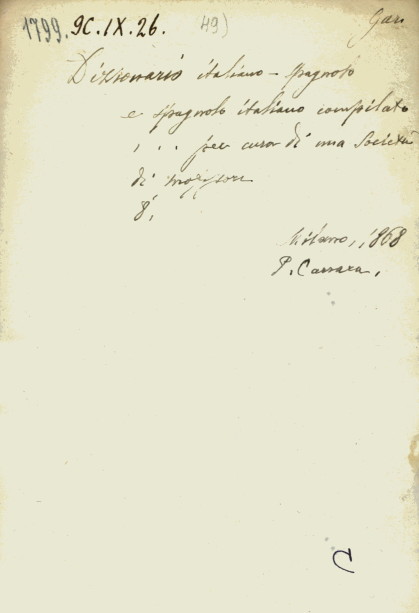 1799. 9C.IX.26. 49) Gar
Dizionario italiano - spagnolo
e spagnolo italiano compilato
, . . per cura di una Società
di
8°,
Milano, 1868
P. Carrara,
C